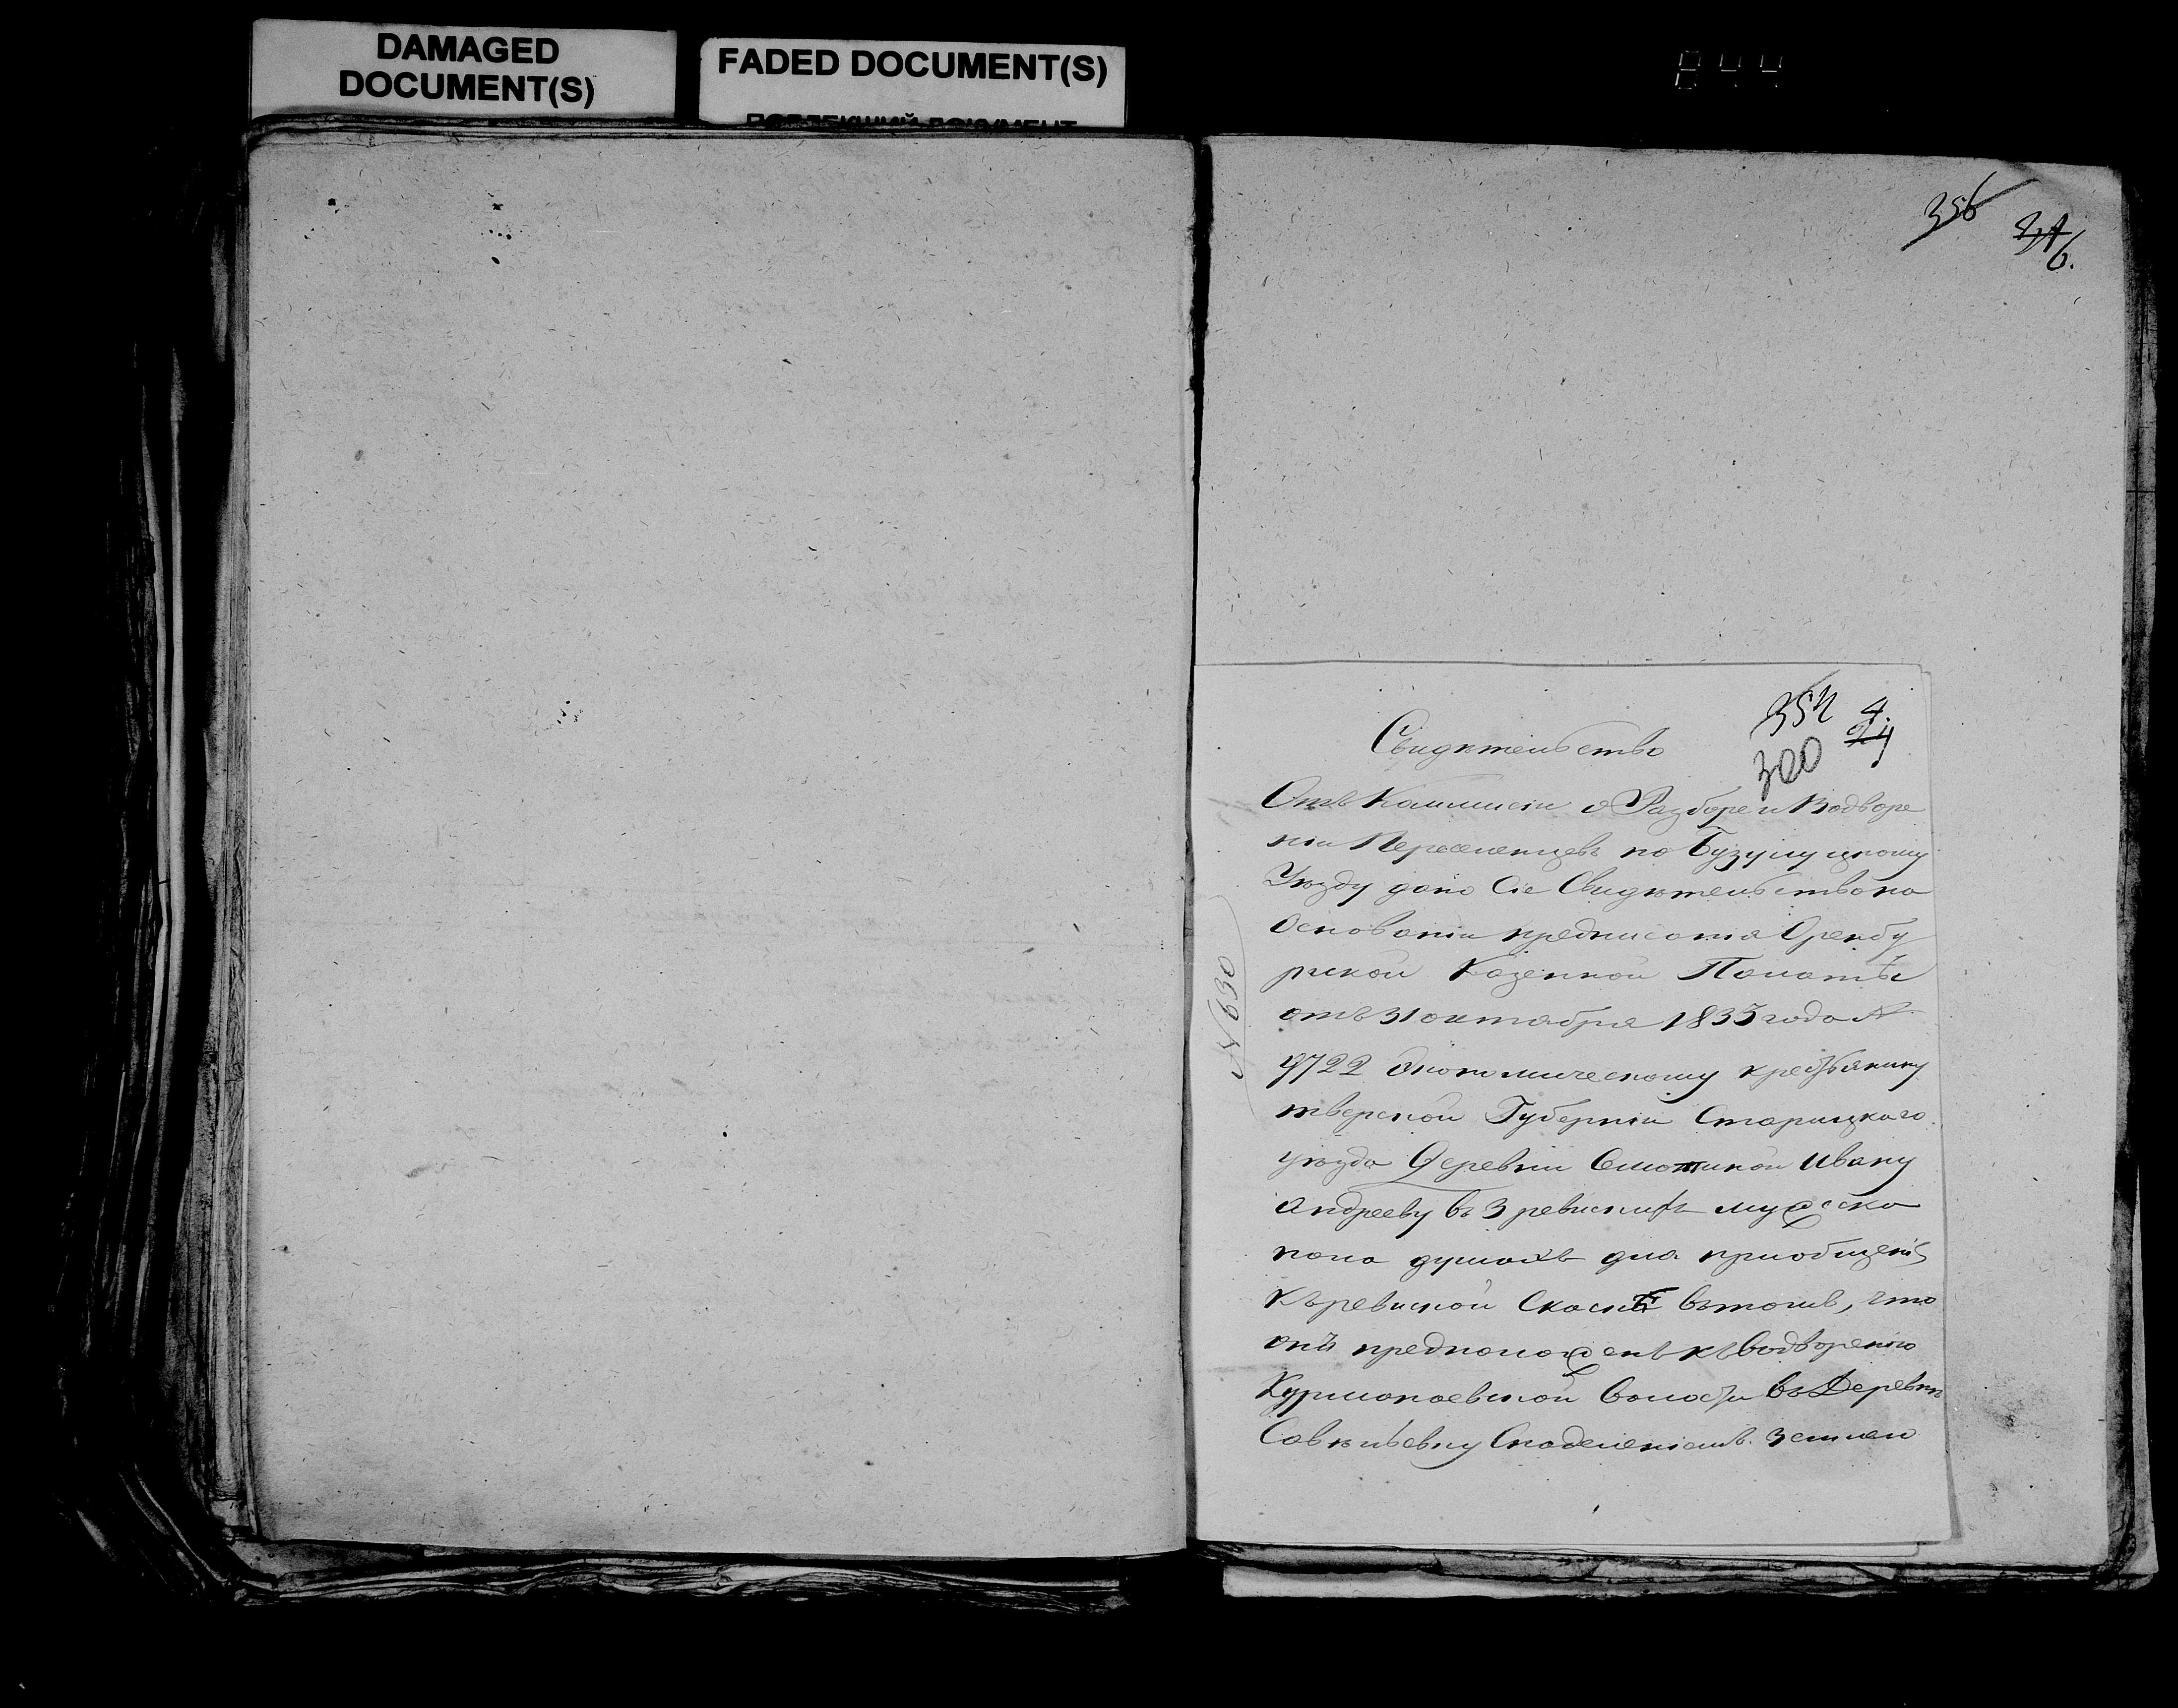 DAMAGED
DOCUMENT(S)
FADED DOCUMENT(S)
844
356
6.
354 4.
300
Свидѣтельство
Отъ Коммисіи о Разборе и Водворе
ніи Переселенцевъ по Бузулуцкому
Уѣзду дано Сіе Свидѣтельство на
Основаніи предписанія Оренбу
ргской Казенной Палаты
отъ 31 октября 1835 года №
9722 Экономическому крестьянину
тверской Губерніи Старицкаго
уѣзда Деревни Ивану
Андрееву въ 3 ревискихъ мужеска
пола душахъ для приобщенія
къ ревиской Скаске вътомъ, что
онъ предположенъ къ водворенію
Курманаевской волости въ Деревню
Савельевку Снаделеніемъ землею
№ 630